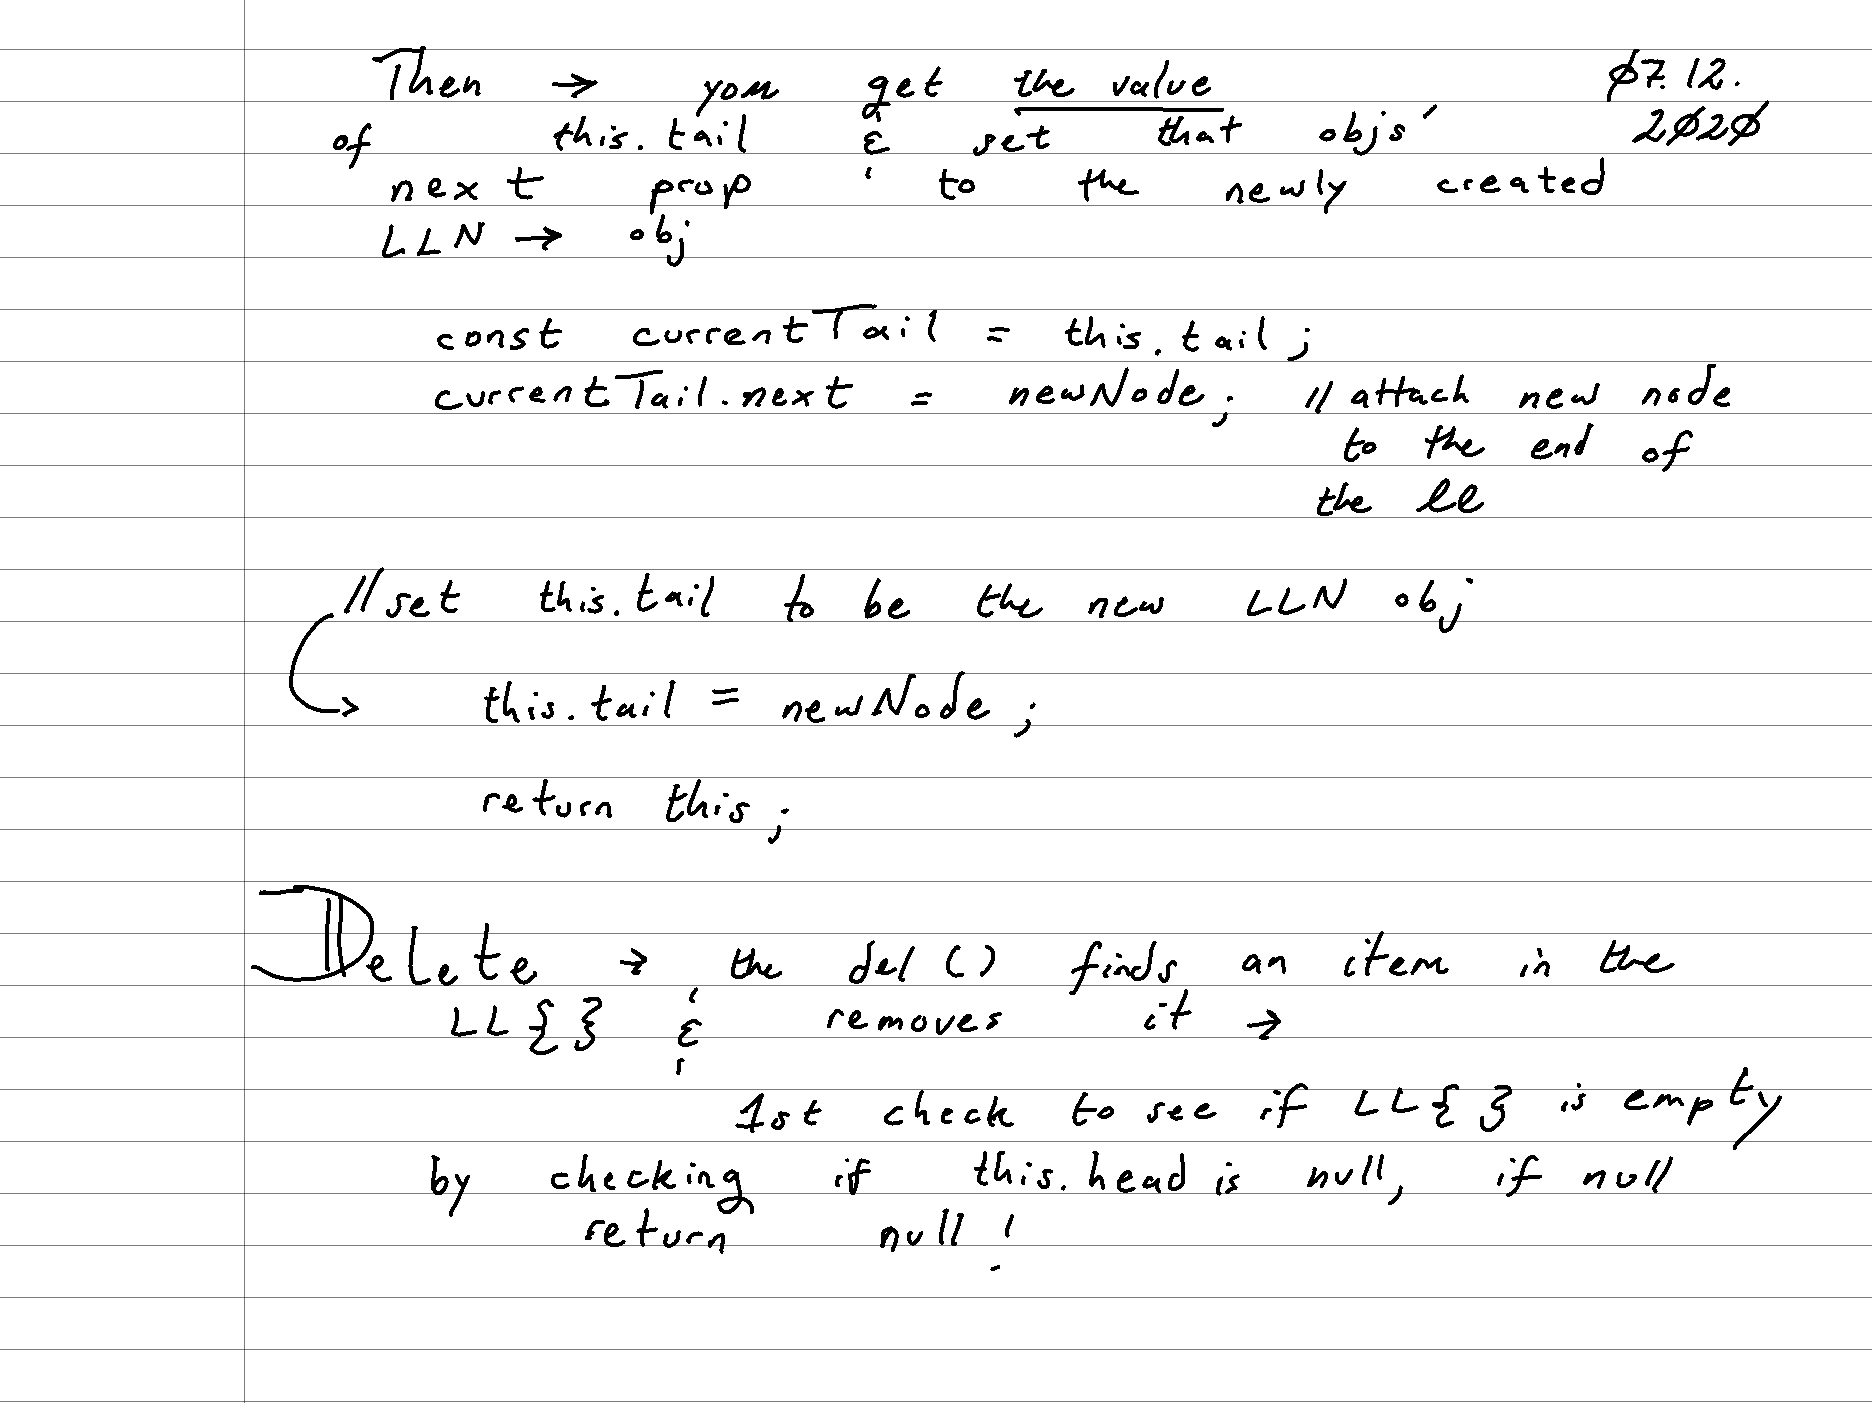 Then → you get the value
07.12.
of this.tail & set that objs'
2020
next prop to the newly created
LLN → obj
const currentTail = this.tail;
currentTail.next = newNode; // attach new node
to the end of
the ll
// set this.tail to be the new LLN obj
this.tail = newNode;
return this;
Delete → the del() finds an item in the
LL{} & removes it →
1st check to see if LL{} is empty
by checking if this.head is null, if null
return null!